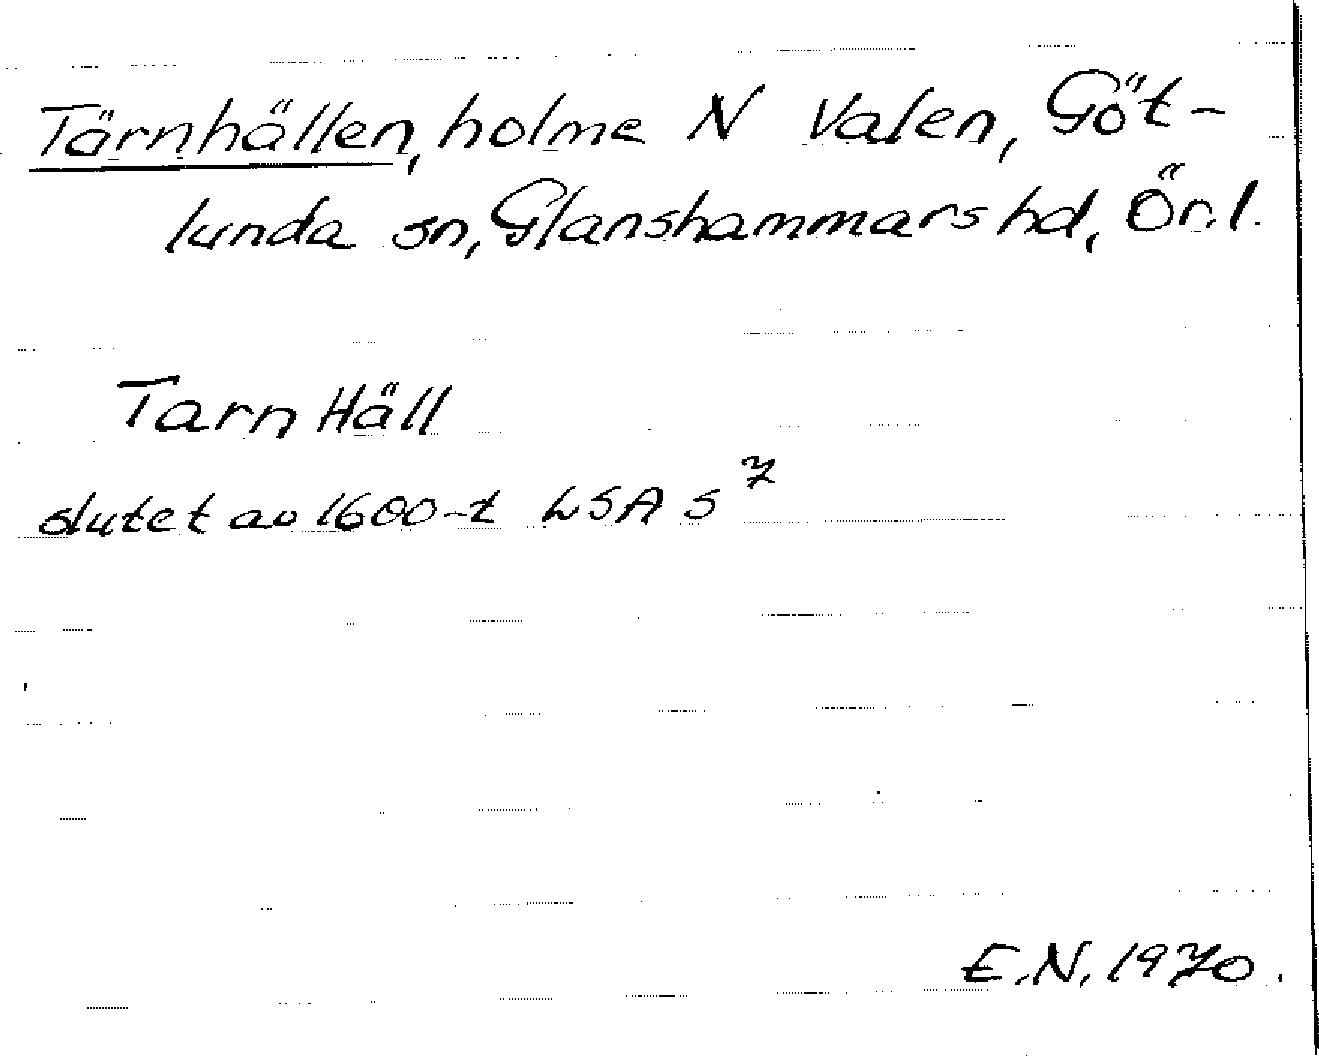 Tärnhällen, holme N Valen, Göt-
lunda sn, Glanshammars hd, Ör. l.
Tarn Häll
slutet av 1600-t LSA S 7
E.N. 1970.